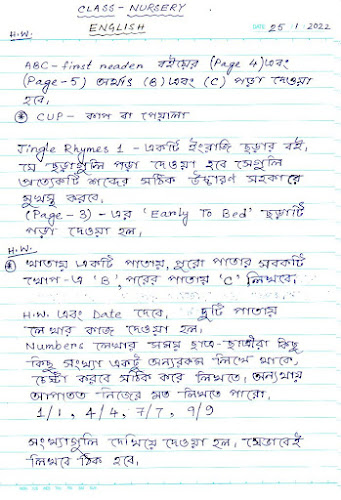 CLASS - NURSERY
ENGLISH
DATE 25/1/2022
H.W.
ABC-first reader বইয়ের (Page 4) এবং
(Page-5) অর্থাৎ (B) এবং (C) পড়া দেওয়া
হবে।
CUP - কাপ বা পেয়ালা
Jingle Rhymes 1 - একটি ইংরাজি ছড়ার বই,
যে ছড়াগুলি পড়া দেওয়া হবে সেগুলি
প্রত্যেকটি শব্দের সঠিক উচ্চারণ সহকারে
মুখস্থ করবে,
(Page-3) -এর 'Early To Bed' ছড়াটি
পড়া দেওয়া হল,
H.W.
খাতায় একটি পাতায়, পুরো পাতার সবকটি
খোপ-এ 'B', পরের পাতায় 'C' লিখবে।
H.W. এবং Date দেবে, দুটি পাতায়
লেখার কাজ দেওয়া হল,
Numbers লেখার সময় ছাত্র-ছাত্রীরা কিছু
কিছু সংখ্যা একটু অন্যরকম লিখে থাকে,
চেষ্টা করবে সঠিক করে লিখতে, অন্যথায়
আপাতত নিজের মত লিখতে পারো,
1/1, 4/4, 7/7, 9/9
সংখ্যাগুলি দেখিয়ে দেওয়া হল, সেভাবেই
লিখবে ঠিক হবে,